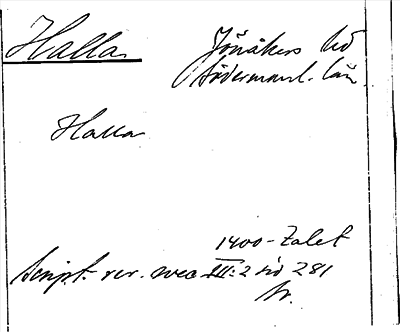 Halla
Jönåkers hd
Södermanl. län
Halla
1400-talet
Script. rer. svec. III:2 sid 281